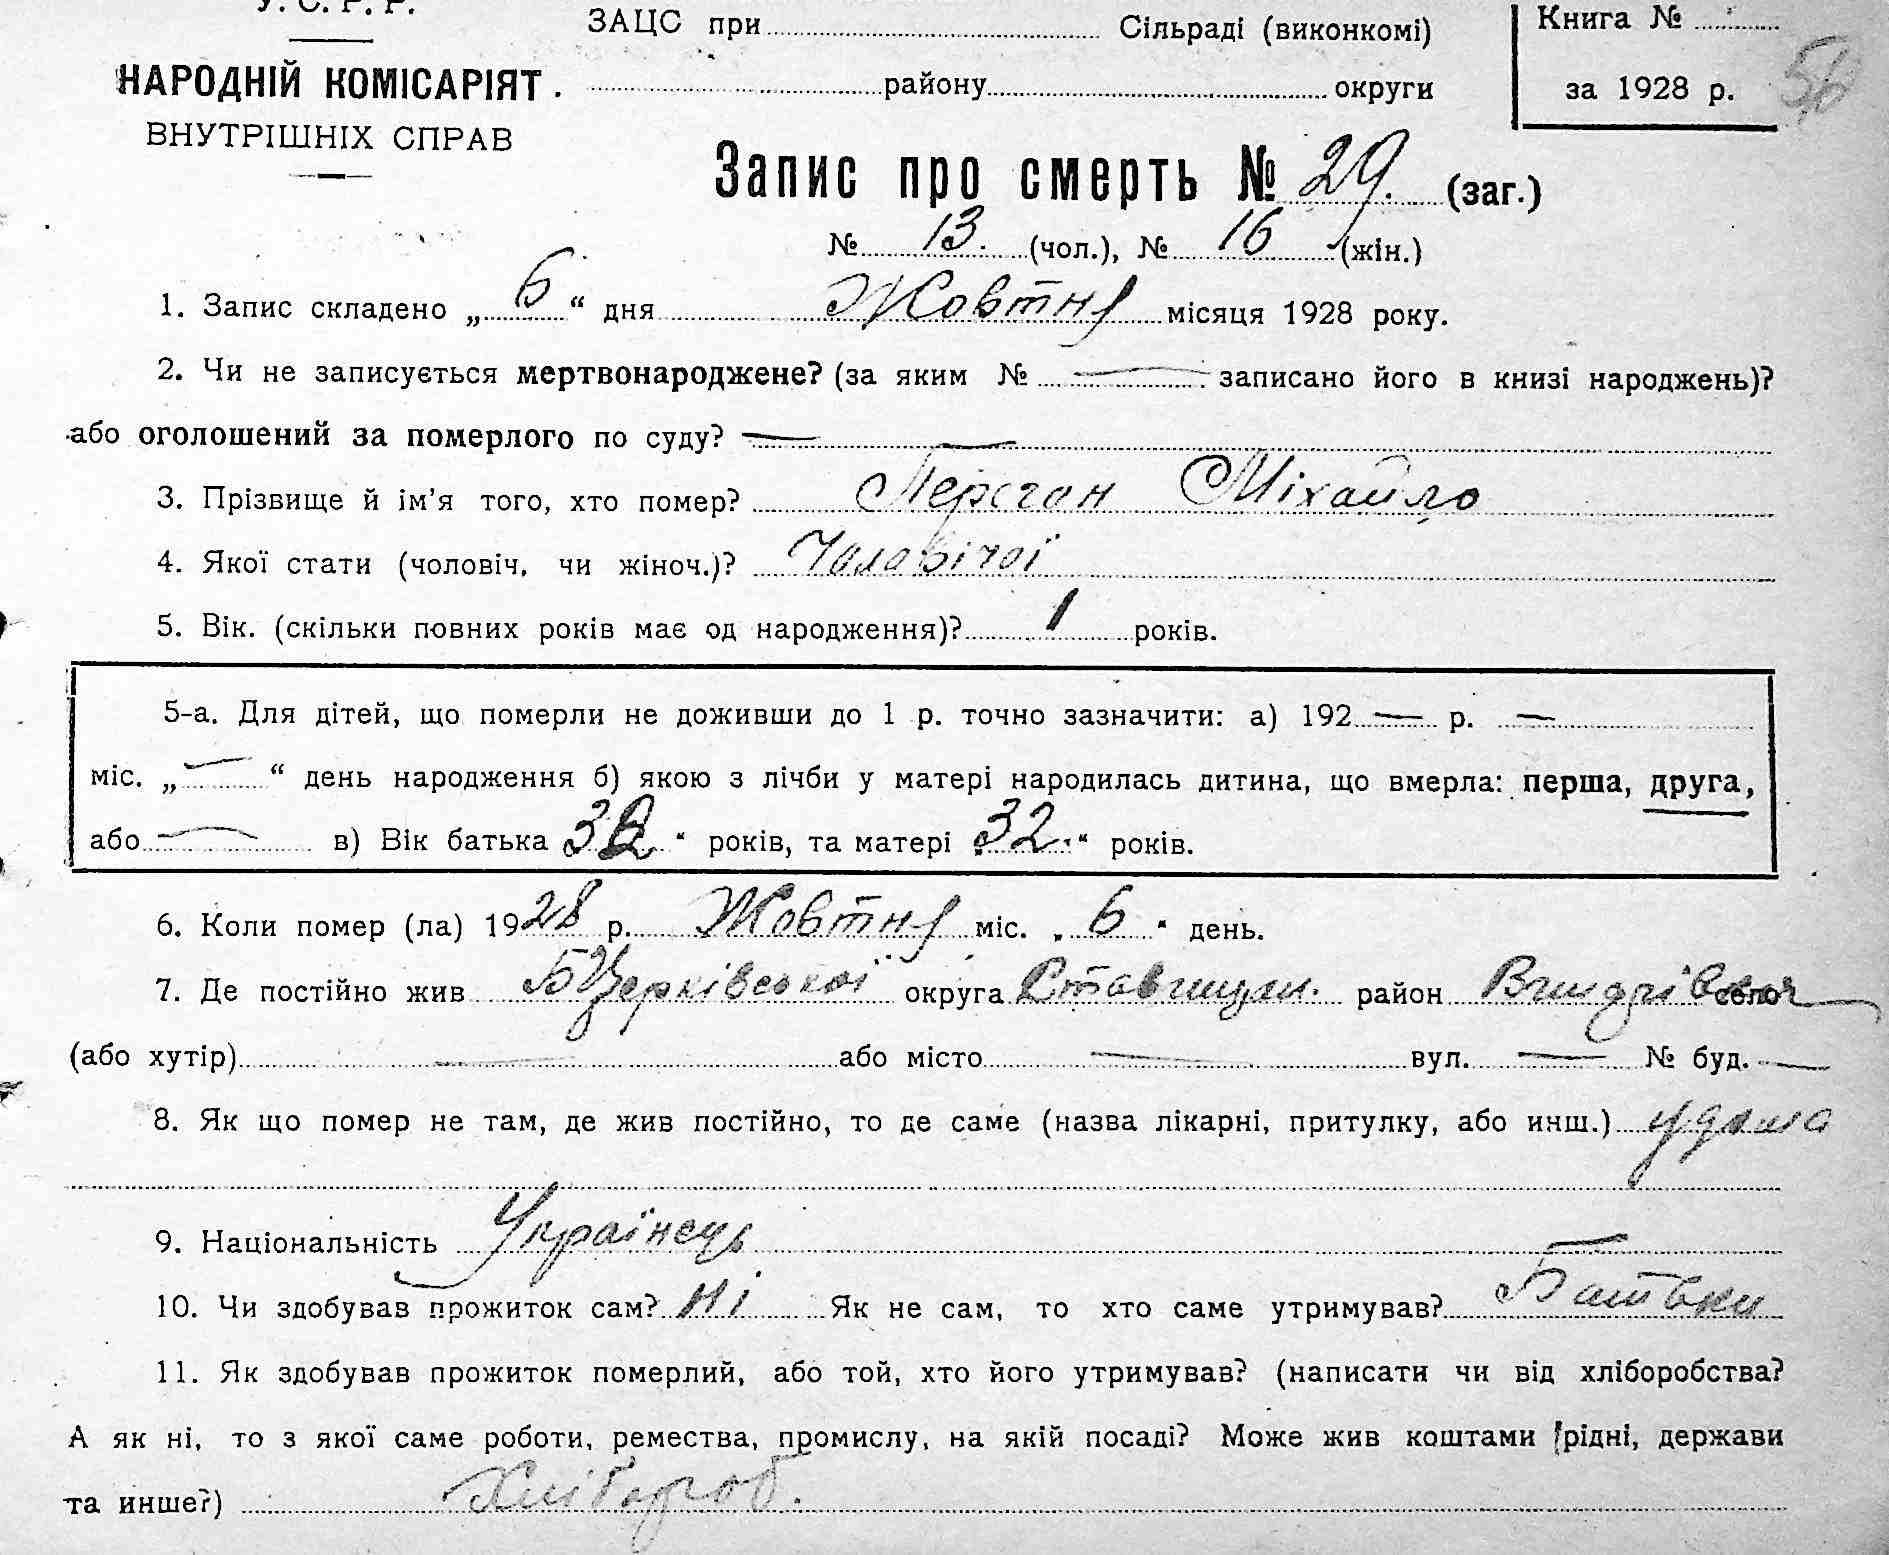 У. С. Р. Р.
НАРОДНІЙ КОМІСАРІЯТ.
ВНУТРІШНІХ СПРАВ
ЗАЦС при Сільраді (виконкомі)
району округи
Книга №
за 1928 р.
Запис про смерть № 29. (заг.)
№ 13. (чол.), № 16 (жін.)
1. Запис складено „ 6 “ дня Жовтня місяця 1928 року.
2. Чи не записується мертвонароджене? (за яким № — записано його в книзі народжень)?
або оголошений за померлого по суду? —
3. Прізвище й ім’я того, хто помер? Міхайло
4. Якої стати (чоловіч, чи жіноч.)? Чоловічої
5. Вік. (скільки повних років має од народження)? 1 років.
5-а. Для дітей, що померли не доживши до 1 р. точно зазначити: а) 192 — р. —
міс. „ — “ день народження б) якою з лічби у матері народилась дитина, що вмерла: перша, друга,
або — в) Вік батька “ років, та матері 32 “ років.
6. Коли помер (ла) 1928 р. Жовтня міс. „ 6 “ день.
7. Де постійно жив БЦерківської округа Ставищан. район село
(або хутір) — або місто — вул. — № буд. —
8. Як що помер не там, де жив постійно, то де саме (назва лікарні, притулку, або инш.) удома
9. Національність Українець
10. Чи здобував прожиток сам? Ні Як не сам, то хто саме утримував? Батьки
11. Як здобував прожиток померлий, або той, хто його утримував? (написати чи від хліборобства?
А як ні, то з якої саме роботи, ремества, промислу, на якій посаді? Може жив коштами рідні, держави
та инше?) Хлібороб.